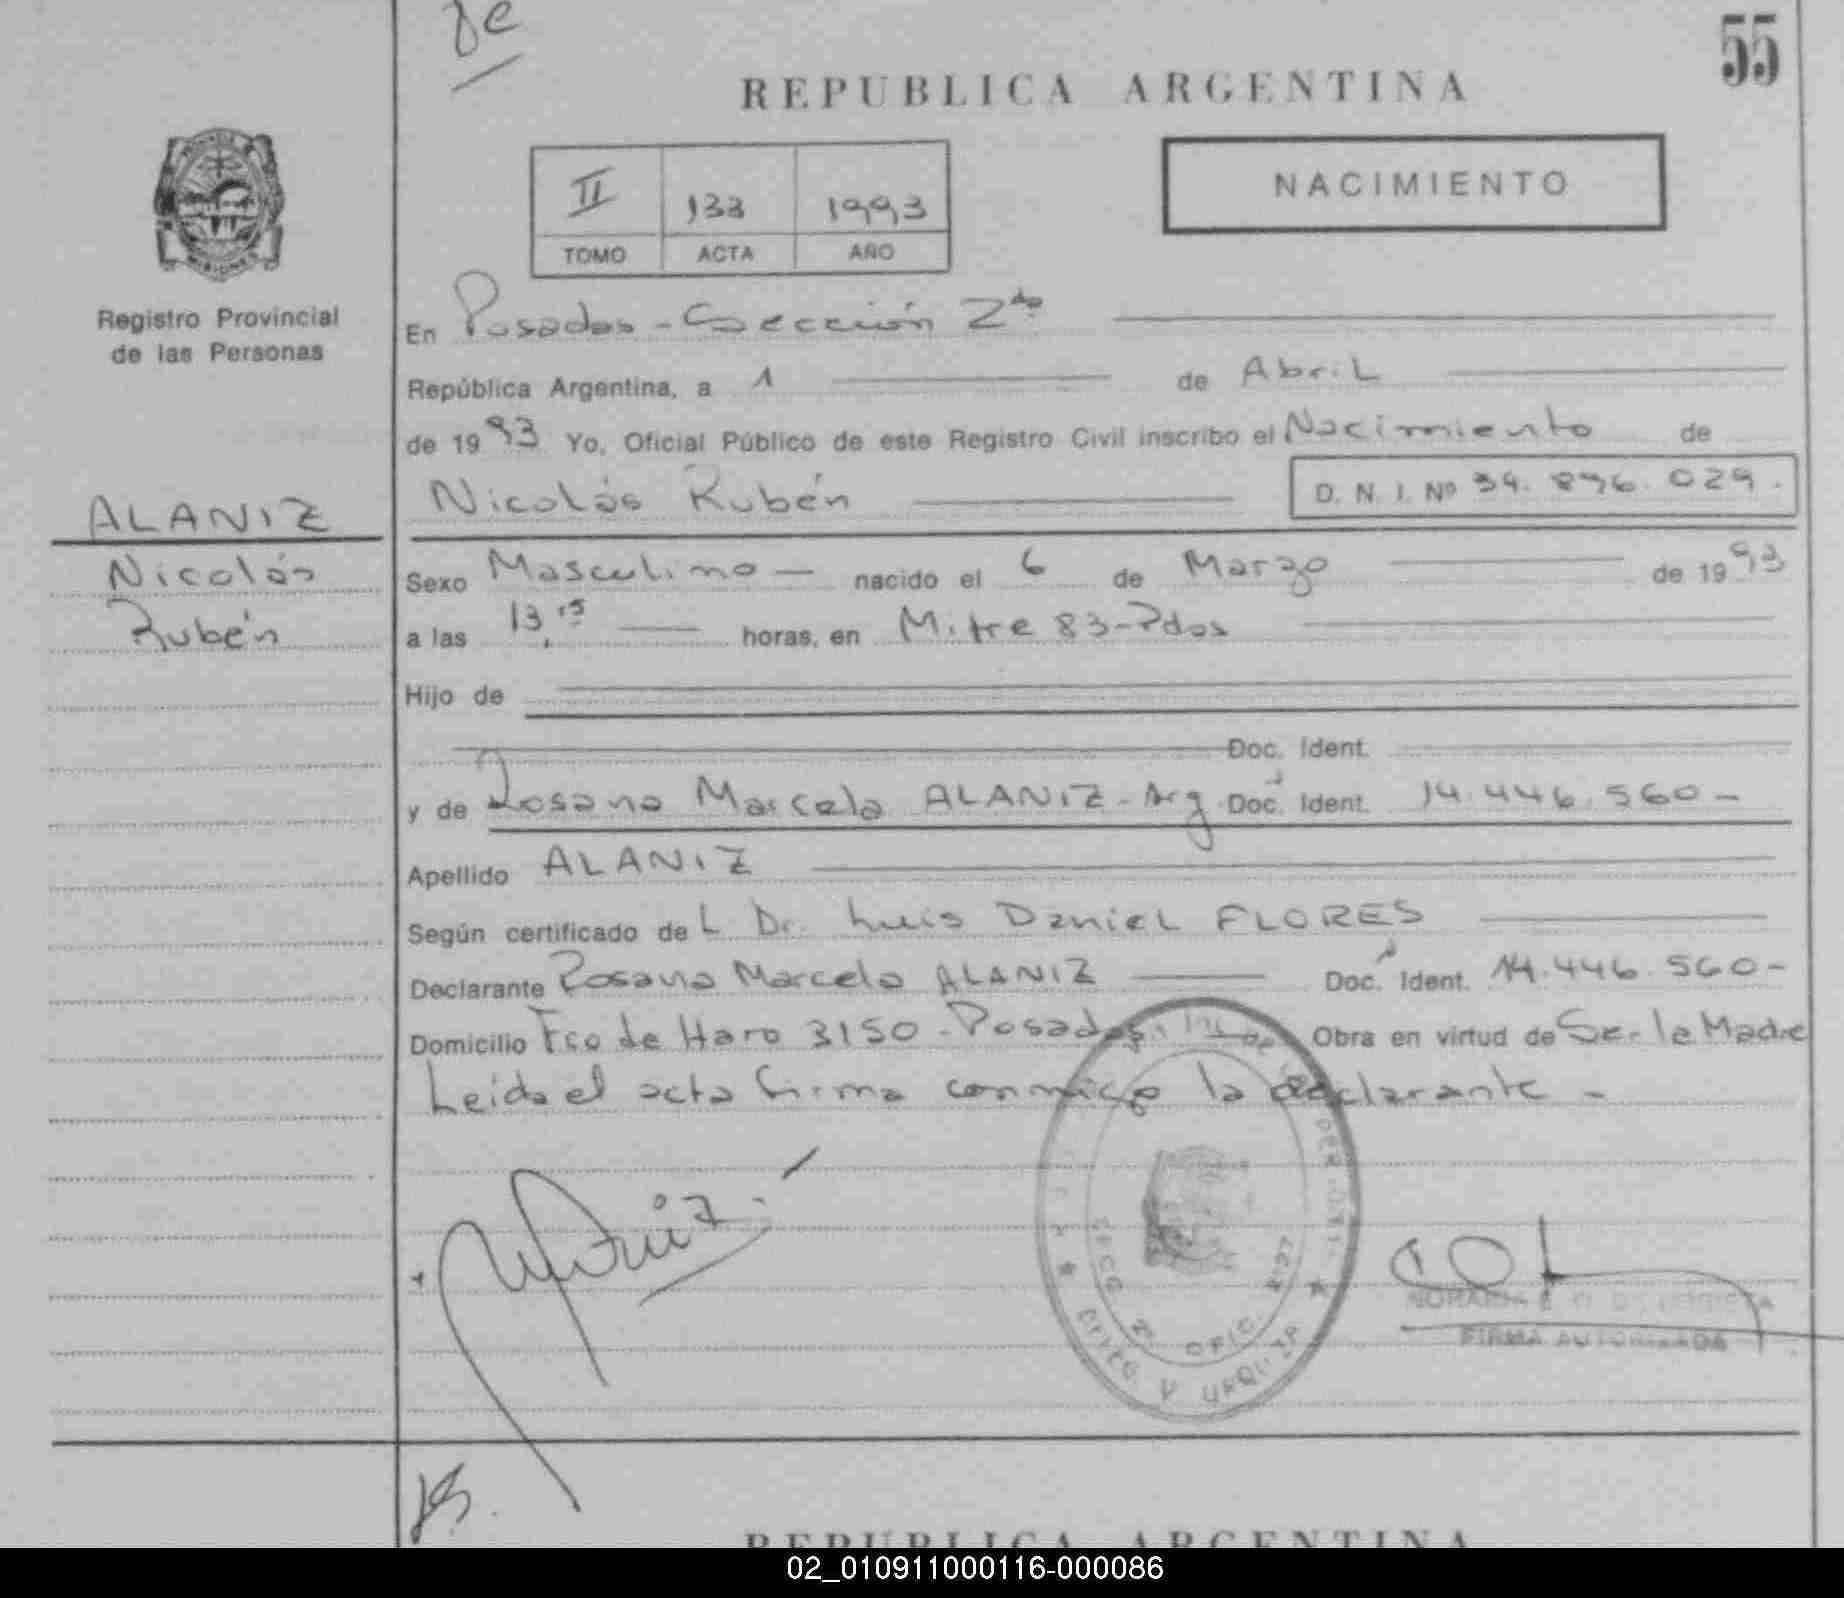 55
REPUBLICA ARGENTINA
NACIMIENTO
II 133 1993
TOMO ACTA AÑO
PROVINCIA
MISIONES
Registro Provincial
de las Personas
En Posadas - Sección 2da
República Argentina, a 1 de Abril
de 1993 Yo, Oficial Público de este Registro Civil inscribo el Nacimiento de
Nicolás Rubén D. N. I. Nº 896.029.
ALANIZ
Nicolás
Rubén
Sexo Masculino — nacido el 6 de Marzo de 1993
a las 13,15 horas, en Mitre 83-Pdas
Hijo de
Doc. Ident.
y de Rosana Marcela ALANIZ - Arg. Doc. Ident. 14.446.560-
Apellido ALANIZ
Según certificado del Dr. Luis Daniel FLORES
Declarante Rosana Marcela ALANIZ Doc. Ident. 14.446.560-
Domicilio Fco de Haro 3150 - Posadas Obra en virtud de Ser la Madre
Leída el acta firma conmigo la declarante -
SECC 2ª OFIC. 237
URQUIZA
FIRMA AUTORIZADA
REPUBLICA ARGENTINA
02_010911000116-000086